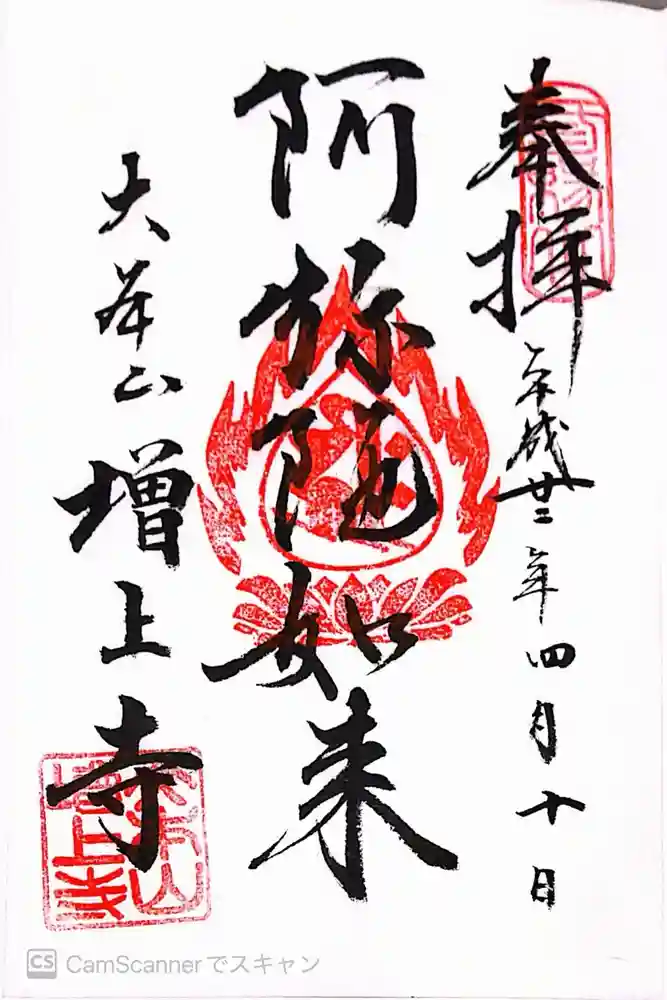 奉拝
平成廿二年四月十日
阿弥陀如来
大本山 増上寺
大本山
増上寺
CS CamScanner でスキャン